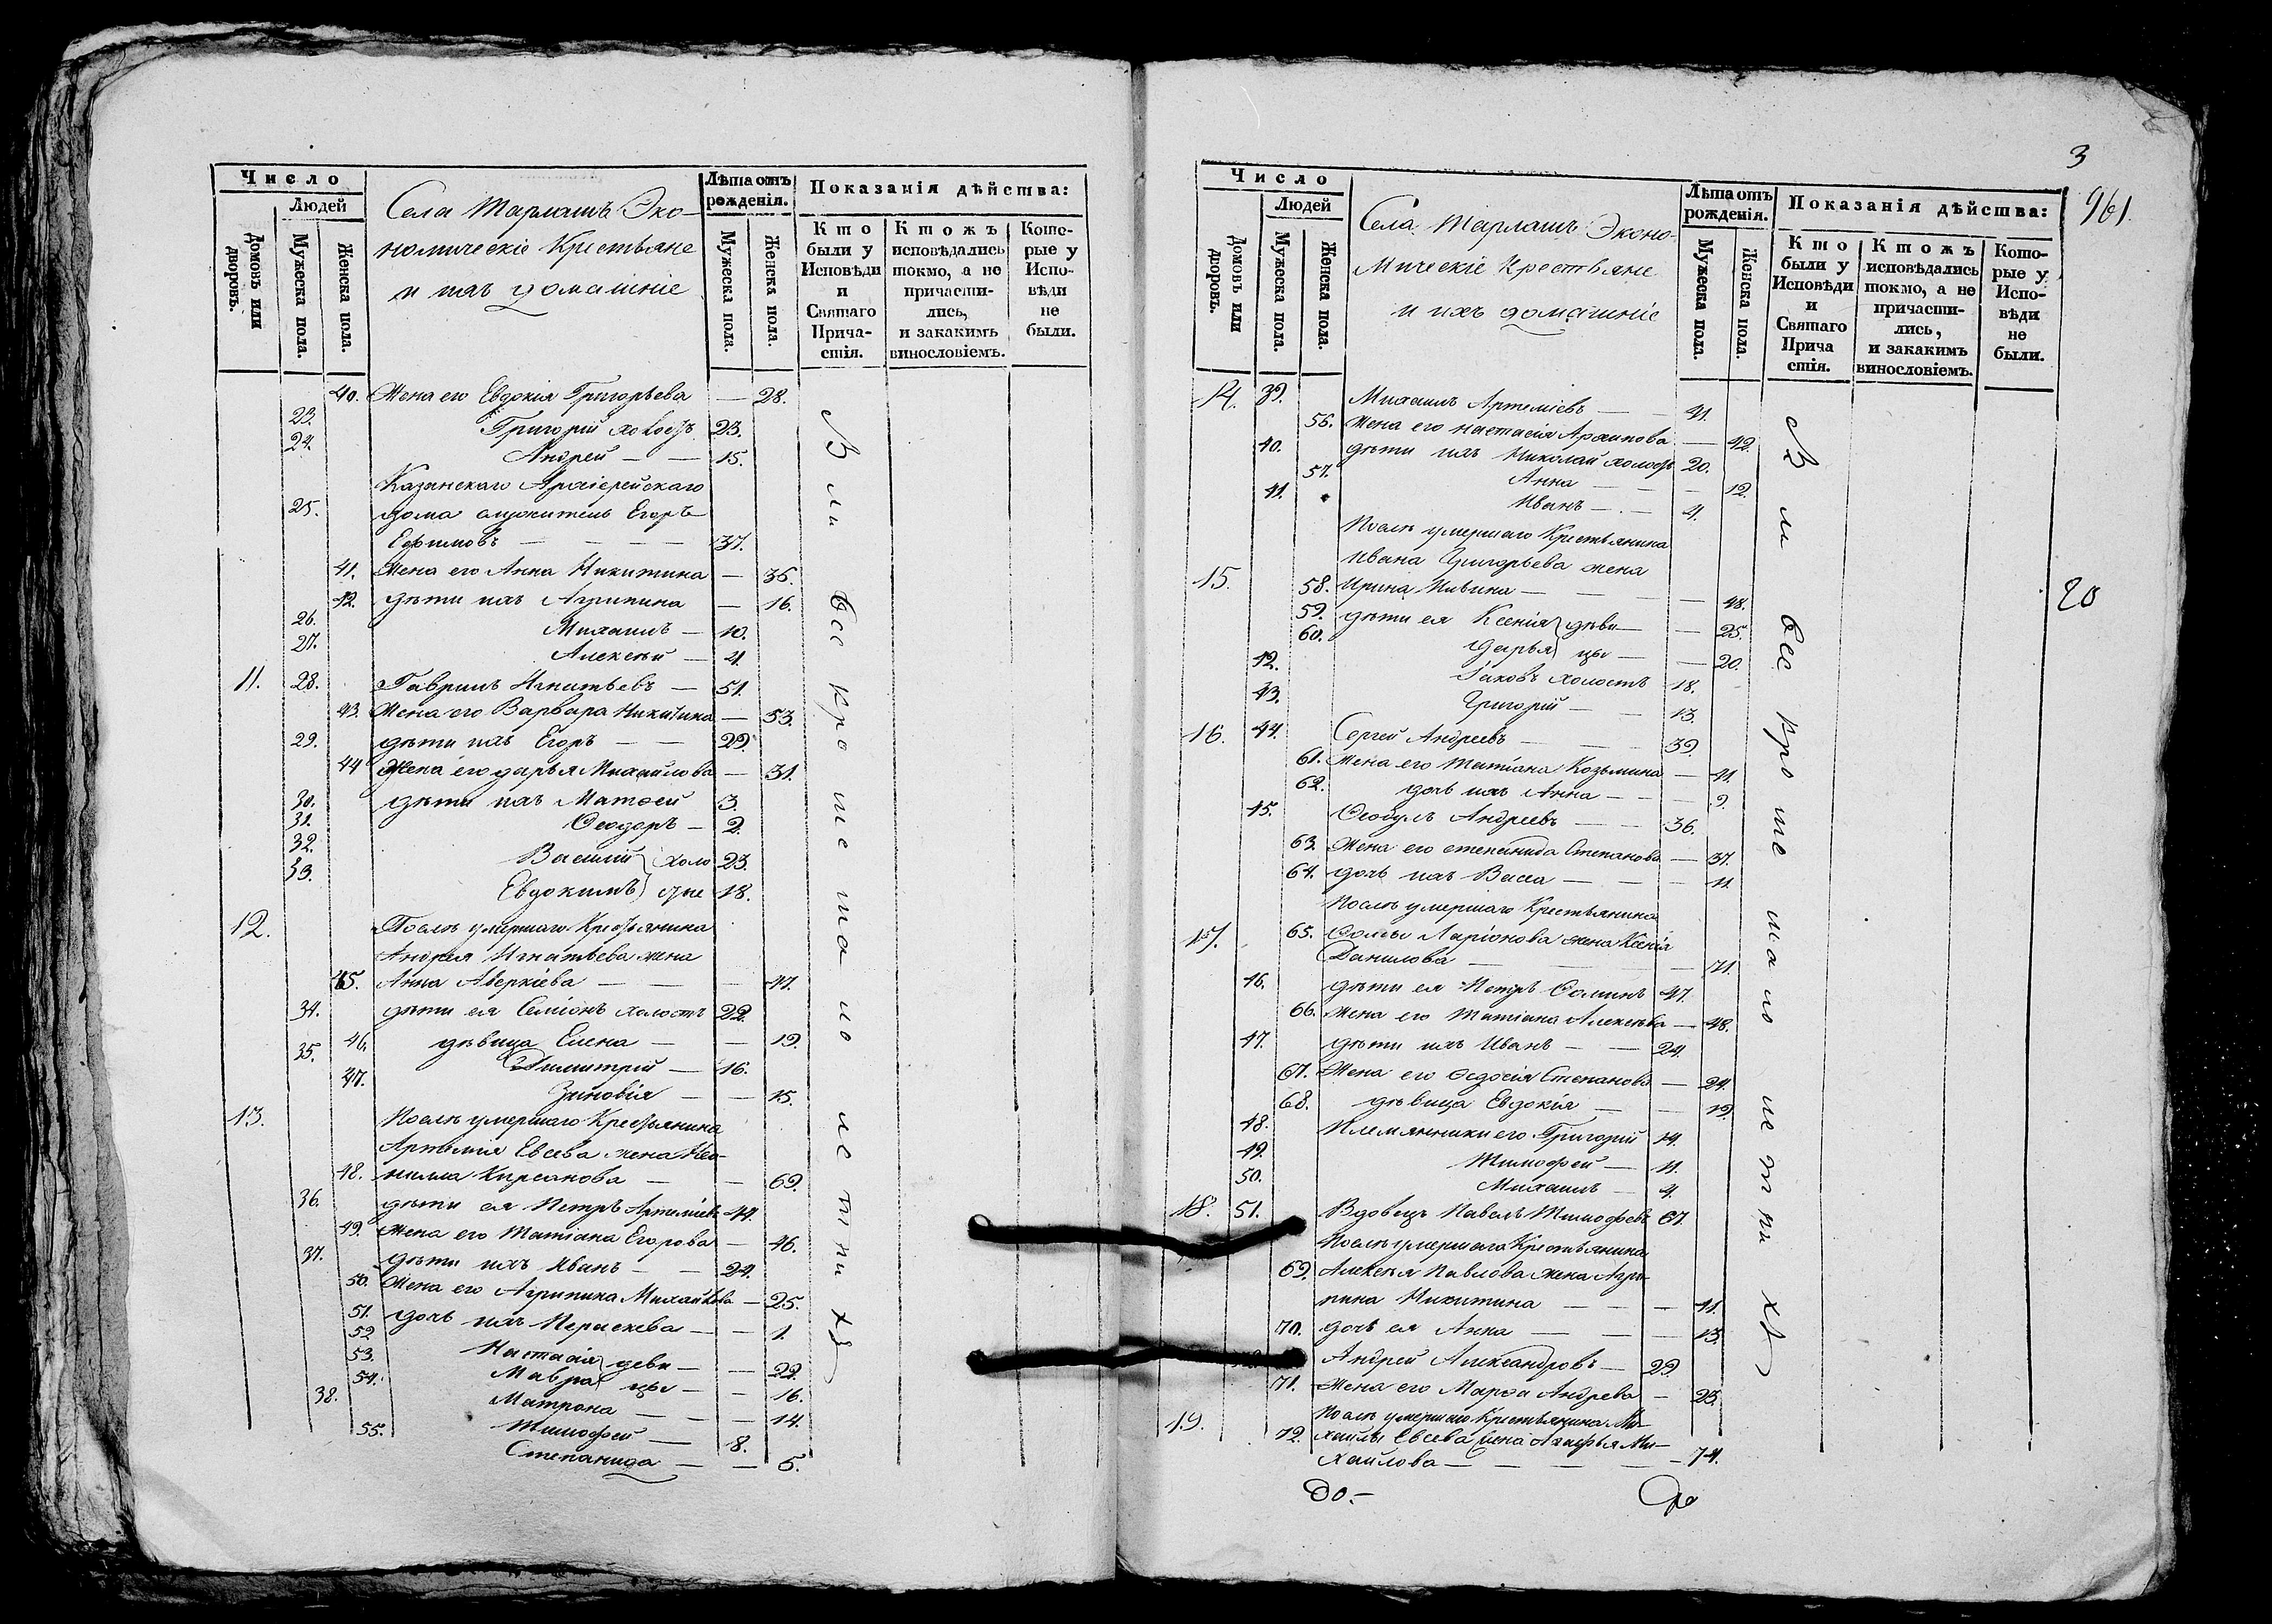 Число
Людей
Домовъ или дворовъ.
Мужеска пола.
Женска пола.
Села Тарлашъ Эко-
номическіе Крестьяне
и ихъ домашніе
Лѣта отъ рожденія.
Мужеска пола.
Женска пола.
Показанія дѣйства:
Кто были у Исповѣди и Святаго Прича-стія.
Ктожъ исповѣдались токмо, а не причасти-лись, и закакимъ винословіемъ.
Кото-рые у Испо-вѣди не были.
40. Жена его Евдокія Григорьева — 28.
23. Григорій холостъ 23.
24. Андрей — — 15.
Казанскаго Архіерейскаго
25. дома служитель Егоръ
Ефимовъ — — — — 37.
41. Жена его Анна Никитина — 36.
42. дѣти ихъ Агрипина — 16.
26. Михаилъ — 10.
27. Алексѣй — 4.
11. 28. Гаврилъ Игнатьевъ — 51.
43. Жена его Варвара Никитина — 53.
29. дѣти ихъ Егоръ — — 29.
44 Жена его дарья Михайлова — 31.
30. дѣти ихъ Матѳей 3.
31. Ѳеодоръ — 2.
32. Василій } холо 23.
33. Евдокимъ } стые 18.
12. Послѣ умершаго Крестьянина
Андрея Игнатьева жена
45. Анна Аверкіева — — — 47.
34. дѣти ея Семіонъ холостъ 22.
46. дѣвица Елена — — 19.
35. Димитрій — 16.
47. Зиновія — — 15.
13. Послѣ умершаго Крестьянина
Артемія Евсева жена Нео-
48. нилла Кирсанова — — 69.
36. дѣти ея Петръ Артеміевъ 44.
49. Жена его Татіана Егорова — 46.
37. дѣти ихъ Иванъ — — 24.
50. Жена его Агрипина Михайлова — 25.
51. дочь ихъ Параскева — — 1.
52 Настасія } деви — — 22.
53. Мавра } цы — — 16.
54. Матрона — — — 14.
38. Тимофей — 8.
55. Степанида — — 5.
В ли все кро ме ма ло ле тни хъ
3
961.
Число
Людей
Домовъ или дворовъ.
Мужеска пола.
Женска пола.
Села Тарлашъ Эконо-
мическіе Крестьяне
и ихъ домашніе
Лѣта отъ рожденія.
Мужеска пола.
Женска пола.
Показанія дѣйства:
Кто были у Исповѣди и Святаго Прича стія.
Ктожъ исповѣдались токмо, а не причасти-лись, и закакимъ винословіемъ.
Кото-рые у Испо-вѣди не были.
14. 39. Михаилъ Артеміевъ — — 41.
56. Жена его Настасія Архипова — 42.
40. дѣти ихъ Николай холостъ 20.
57. Анна — — — 12.
41. Иванъ — — 4.
Послѣ умершаго Крестьянина
Ивана Григорьева жена
15. 58. Ирина — — — 48.
59. дѣти ея Ксенія } дѣви — — 25.
60. Дарья } цы — — 20.
42. Іаковъ холостъ 18.
43. Григорій — — 13.
16. 44. Сергей Андреевъ — — — 39.
61. Жена его Татіана Козьмина — 41.
62. дочь ихъ Анна — — — 9.
45. Ѳеодулъ Андреевъ — — 36.
63. Жена его степанида Степанова — 37.
64. дочь ихъ Васса — — — 11.
Послѣ умершаго Крестьянина
17. 65. Ѳомы Ларіонова жена Ксенія
Данилова — — — 71.
46. дѣти ея Петръ Ѳоминъ 47.
66. Жена его Татіана Алексѣева — 48.
47. дѣти ихъ Иванъ — — 24.
67. Жена его Ѳедосія Степанова — 24.
68. дѣвица Евдокія — — 19.
48. Племянники его Григорій 14.
49. Тимофей — 11.
50. Михаилъ — 4.
18. 51. Вдовецъ Павелъ Тимофеевъ 67.
Послѣ умершаго Крестьянина
69. Алексѣя Павлова жена Агри-
пина Никитина — — — 41.
70. дочь ея Анна — — — 13.
Андрей Александровъ — 29.
71. Жена его Марѳа Андреева — 23.
19. Послѣ умершаго Крестьянина Ми-
72. хаилы Евсева жена Агафья Ми-
хайлова — — — — 74.
до.—
В ли все кро ме ма ло ле тни хъ
20